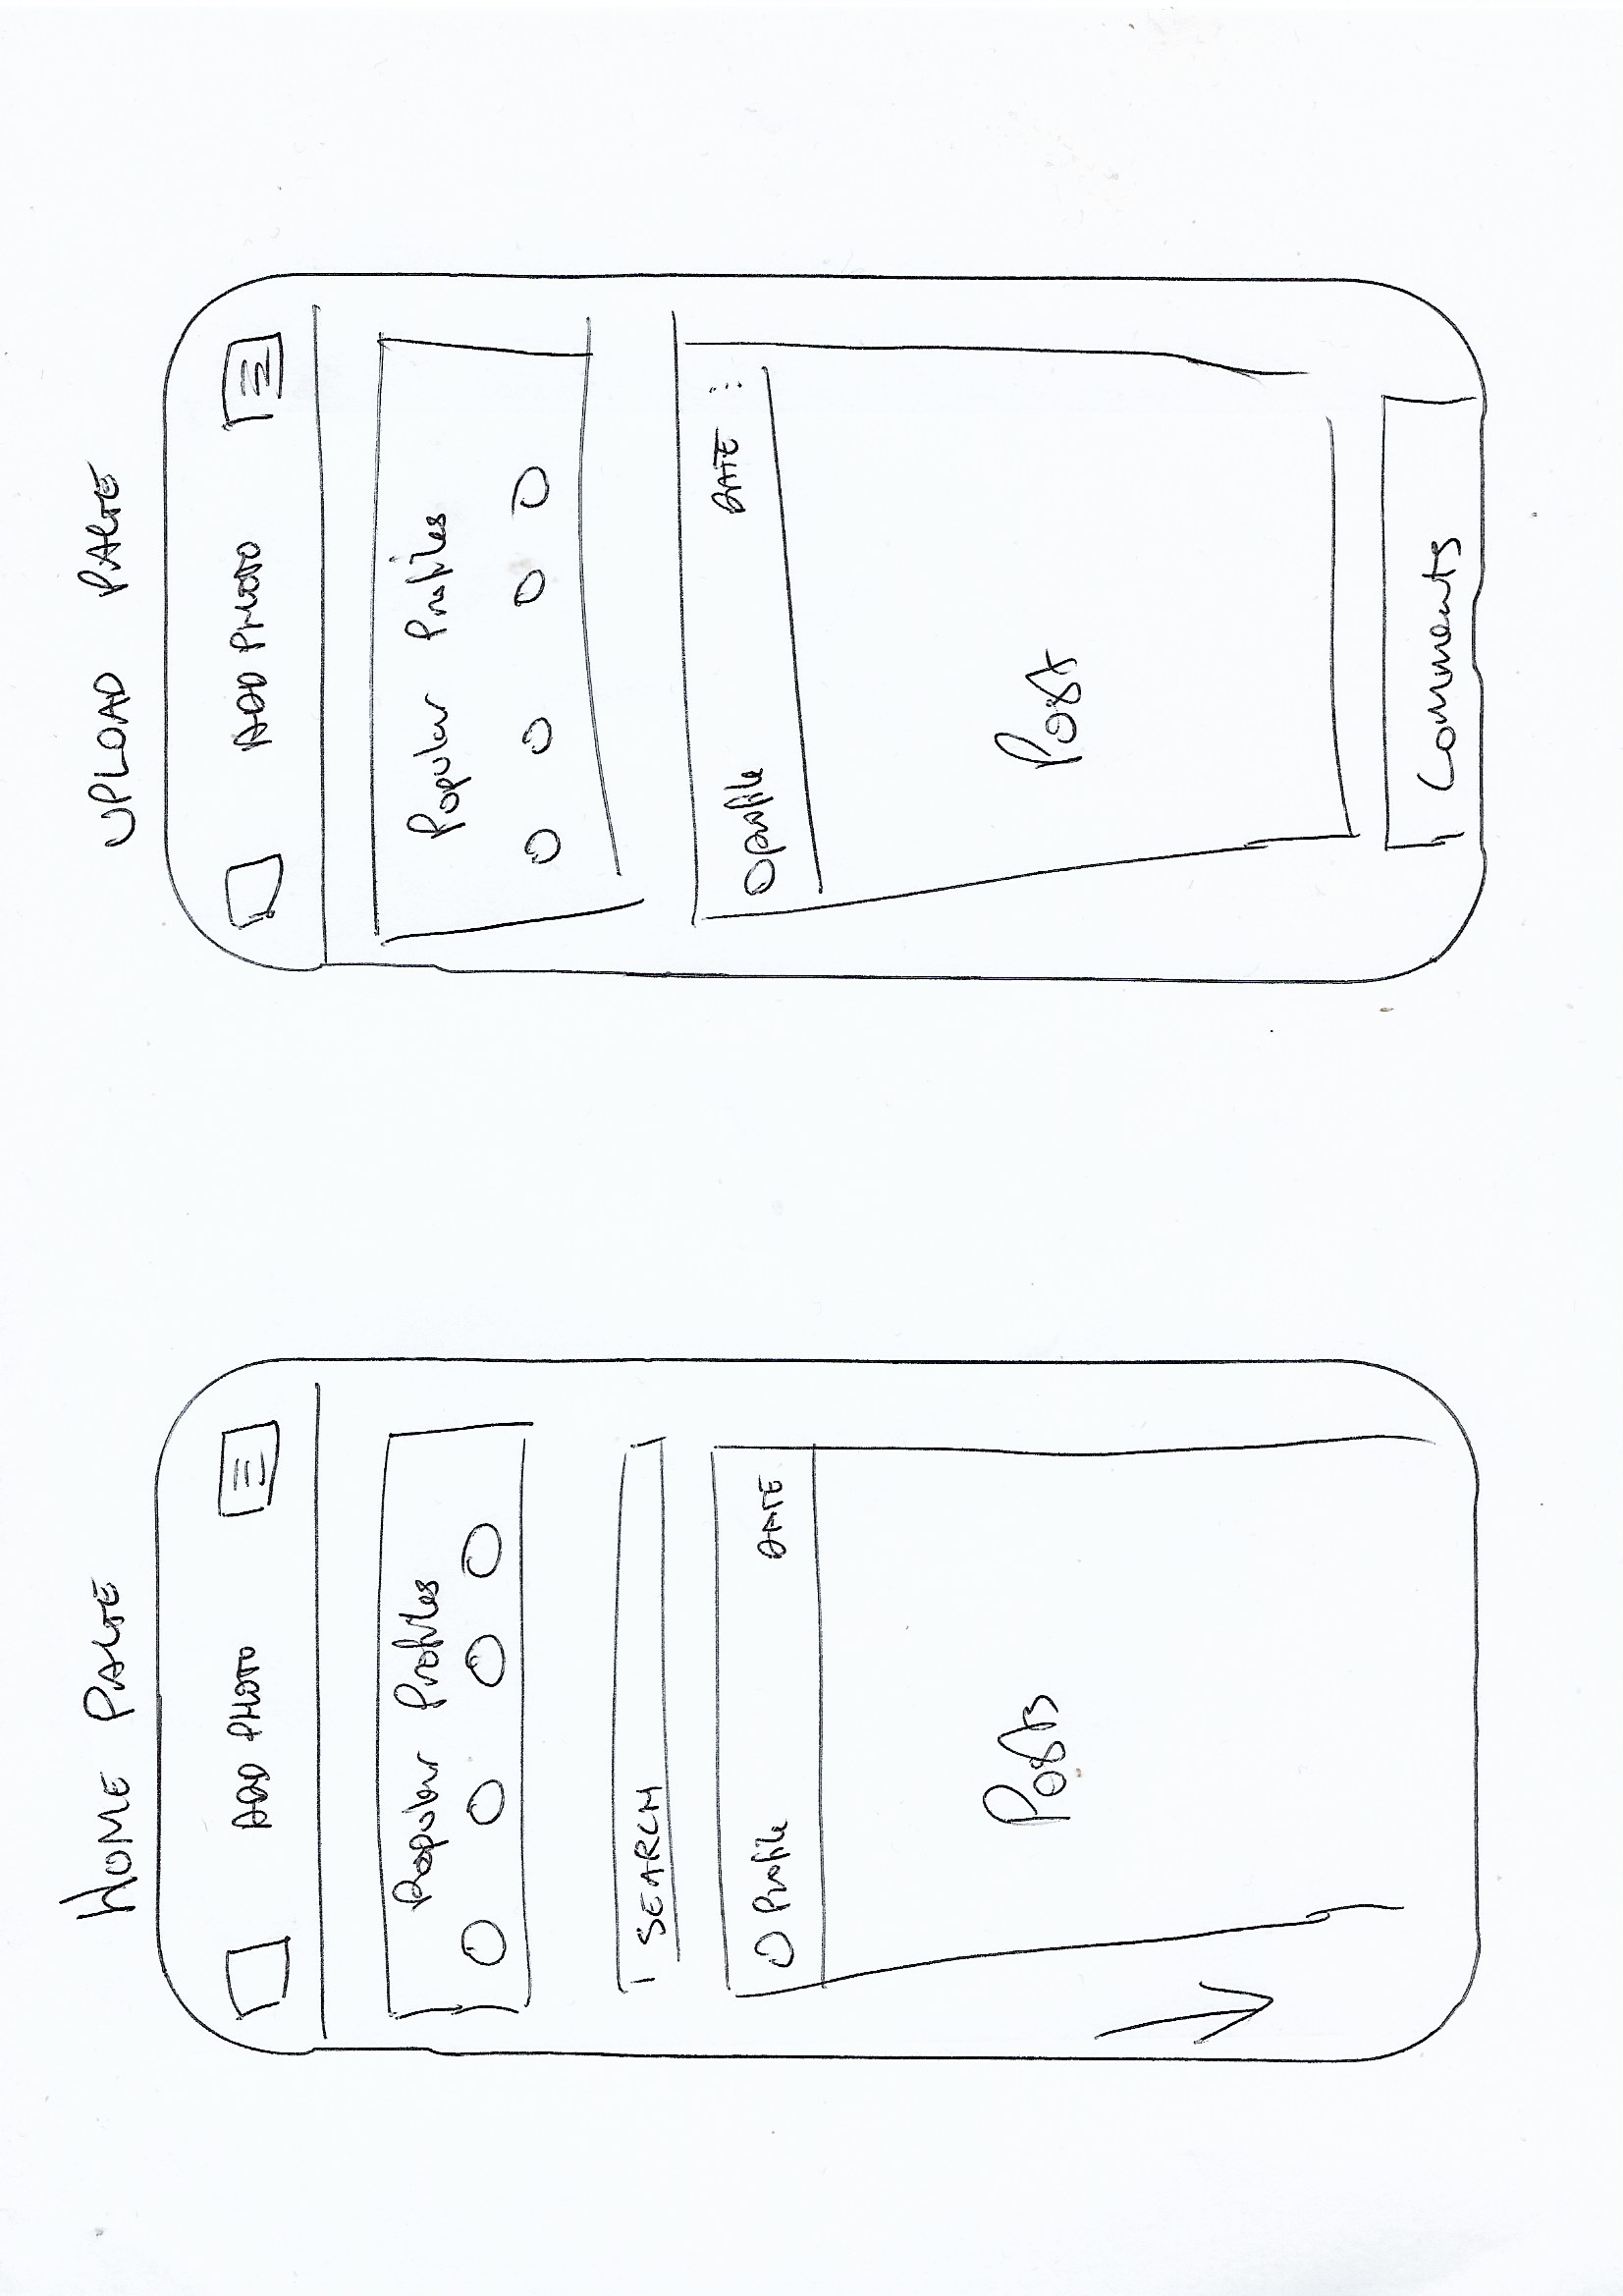 HOME PAGE
ADD PHOTO
Popular Profiles
SEARCH
Profile DATE
Posts
UPLOAD PAGE
ADD PHOTO
Popular Profiles
profile DATE
Post
Comments